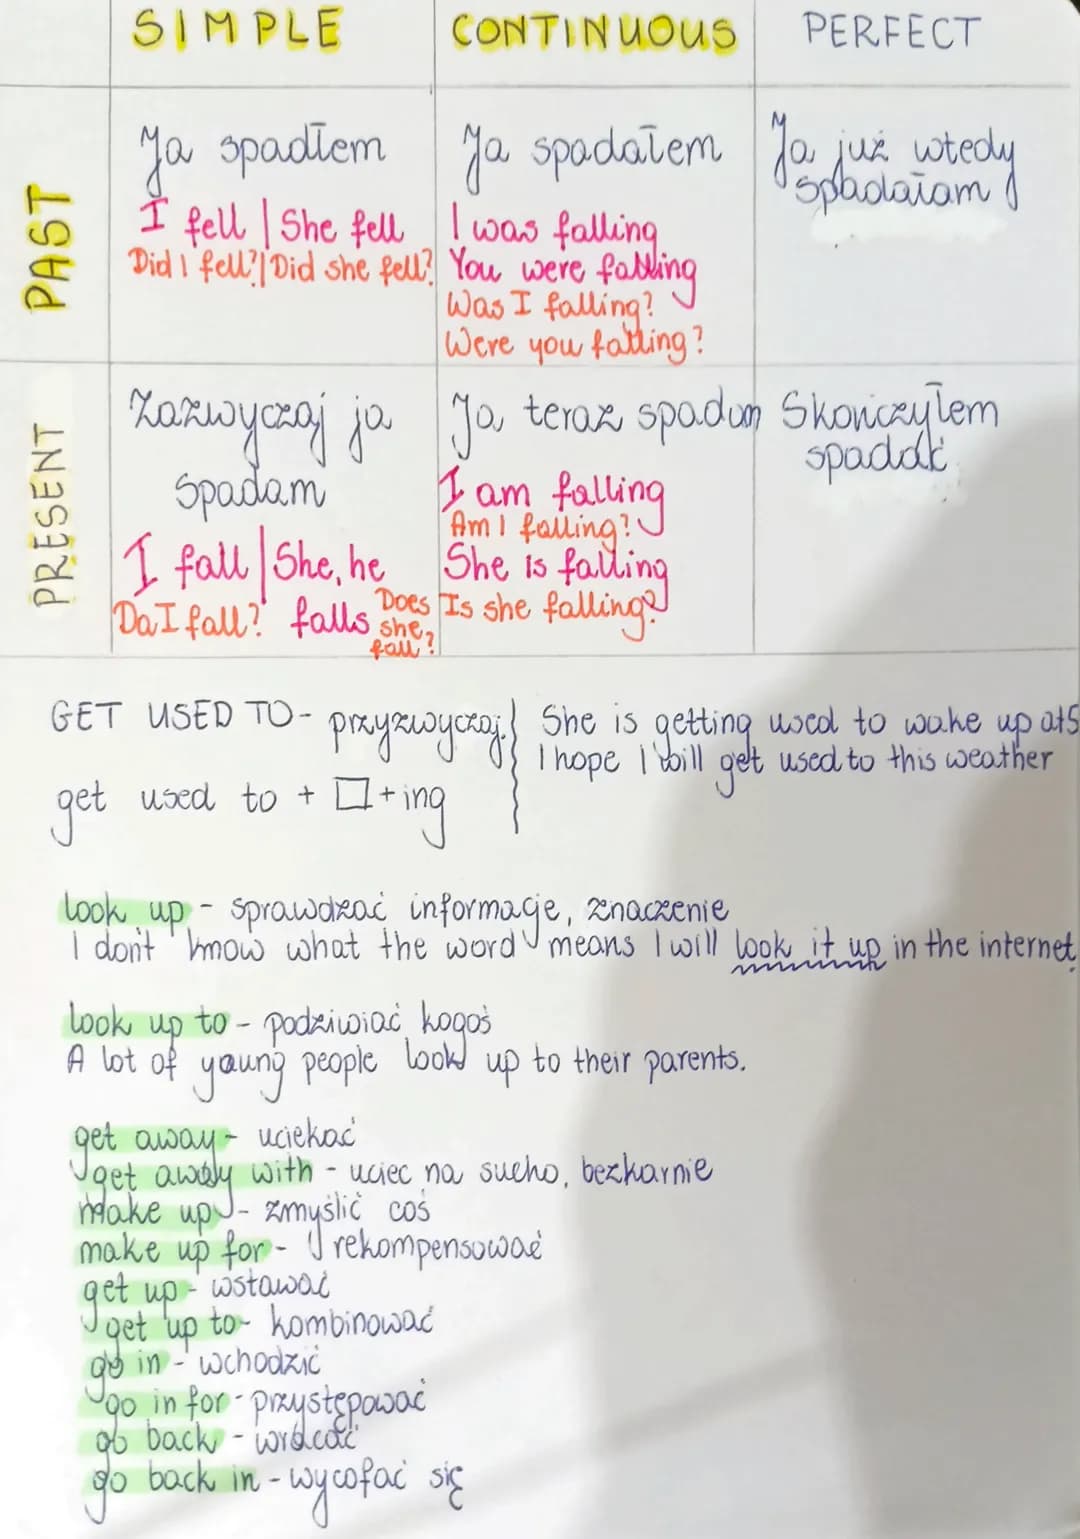 SIMPLE CONTINUOUS PERFECT
PAST
Ja spadłem
I fell | She fell
Did I fell? | Did she fell?
Ja spadałem
I was falling
You were falling
Was I falling?
Were you falling?
Ja już wtedy
spadałam
PRESENT
Zazwyczaj ja
spadam
I fall | She, he
falls
Do I fall?
Does
she
fall?
Ja teraz spadam
I am falling
Am I falling?
She is falling
Is she falling?
Skończyłem
spadać
GET USED TO - przyzwyczaj.
get used to + □ + ing
She is getting used to wake up at 5
I hope I will get used to this weather
look up - sprawdzać informacje, znaczenie
I don't know what the word means I will look it up in the internet
look up to - podziwiać kogoś
A lot of young people look up to their parents.
get away - uciekać
get away with - uciec na sucho, bezkarnie
make up - zmyślić coś
make up for - rekompensować
get up - wstawać
get up to - kombinować
go in - wchodzić
go in for - przystępować
go back - wracać
go back in - wycofać się